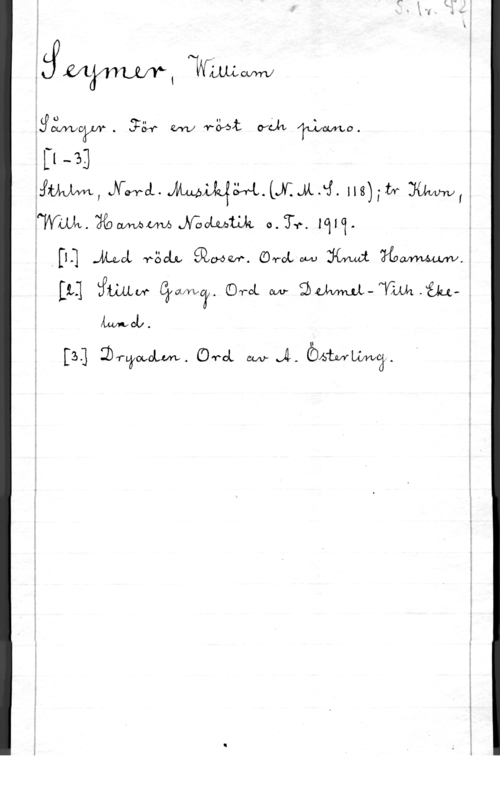 S. Tr. 92
Seymer, William
Sånger. För en röst och piano.
[1-3]
Sthlm, Nord. Musikförl. (N.M.S. 118); tr Khvn,
Wilh. Hansens Nodestik o. Tr. 1919.
[1.] Med röde Roser. Ord av Knut Hamsun.
[2.] Stiller Gang. Ord av Dehmel-Vilh. Eke-
lund.
[3.] Dryaden. Ord av A. Österling.